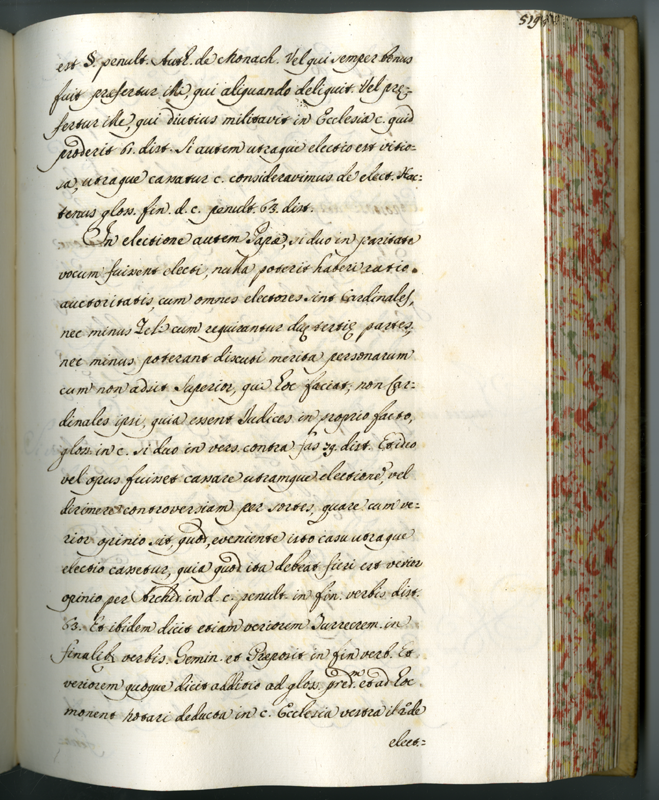 519
est §. penult. Auth. de Monach. Vel qui semper bonus
fuit prefertur ille, qui aliquando deliquit. Vel pre-
fertur ille, qui diutius militavit in Ecclesia c. quid
proderit 61. dist. Si autem utraque electio est vitio-
sa, utraque cassatur c. consideravimus de elect. Hac-
tenus gloss. fin. d. c. penult. 63. dist.
In electione autem Papæ, si duo in paritate
vocum fuissent electi, nulla poterit haberi ratio
auctoritatis, cum omnes electores sint Cardinales,
nec minus cum requirantur duę tertię partes,
nec minus poterant discuti merita personarum
cum non adsit Superior, qui hoc faciat, non Car-
dinales ipsi, quia essent Judices in proprio facto,
gloss. in c. Si duo in vers. contra fas 79. dist. Et ideo
vel opus fuisset cassare utramque electione, vel
dirimere controversiam per sortes, quare cum ve-
rior opinio sit, quod, eveniente isto casu utraque
electio cassetur, quia quod ita debeat fieri est verior
opinio per Archid. in d. c. penult. in fin. verbis dist.
63. Et ibidem dicit etiam veriorem Turrecrem. in
finalib. verbis. Gemin. et Preposit. in fin. verb. Et
veriorem quoque dicit additio ad gloss. pred.m et ad hoc
monent notari deducta in c. Ecclesia vestra il 2. de
elect.=